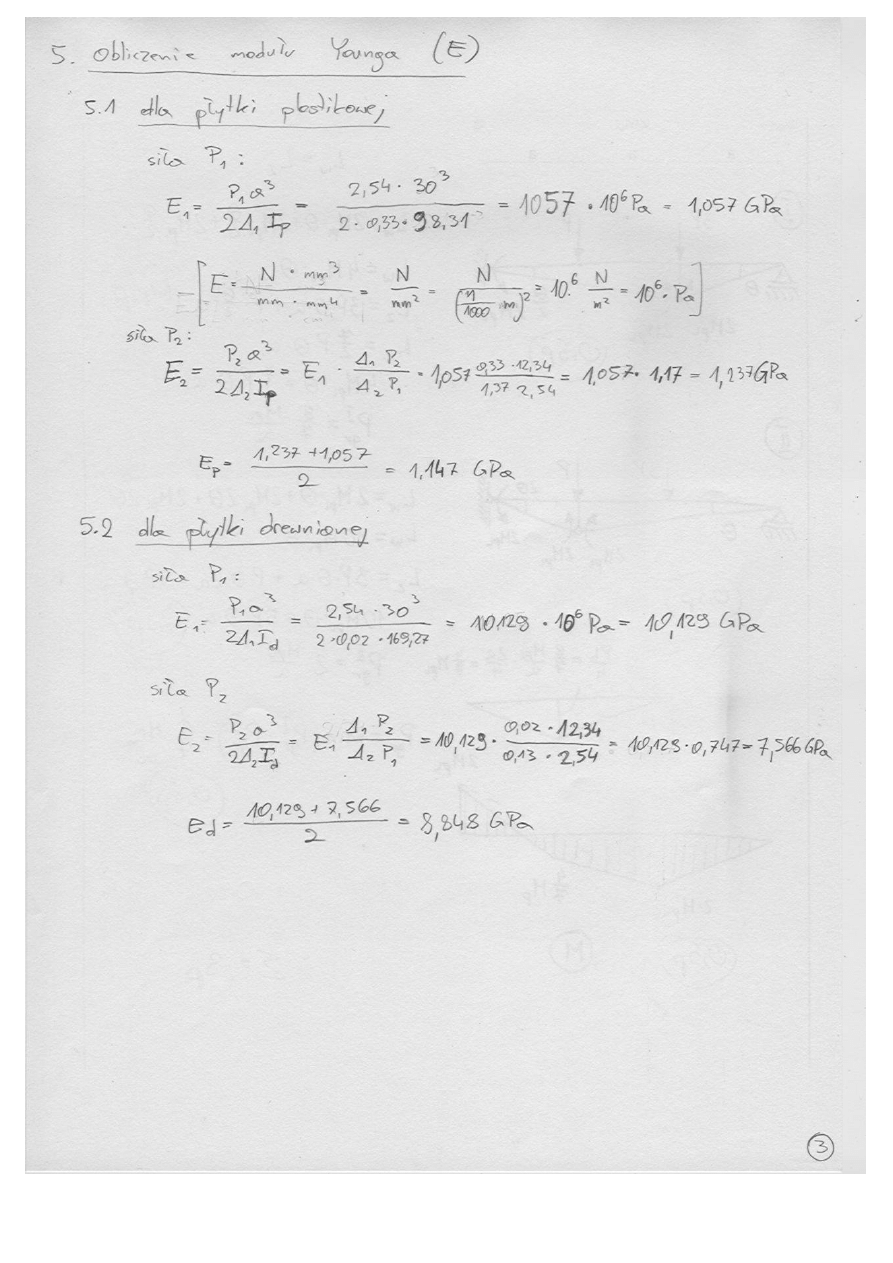 5. Obliczenie modułu Younga (E)
5.1 dla płytki plastikowej
siła P₁:
E₁ = P₁a³ / 2Δ₁Iₚ = 2,54 · 30³ / 2 · 0,33 · 98,31 = 1057 · 10⁶ Pa = 1,057 GPa
[E = N · mm³ / mm · mm⁴ = N / mm² = N / (1/1000 m)² = 10⁶ N/m² = 10⁶ · Pa]
siła P₂:
E₂ = P₂a³ / 2Δ₂Iₚ = E₁ · Δ₁ P₂ / Δ₂ P₁ = 1,057 0,33 · 12,34 / 1,37 · 2,54 = 1,057 · 1,17 = 1,237 GPa
Eₚ = 1,237 + 1,057 / 2 = 1,147 GPa
5.2 dla płytki drewnianej
siła P₁:
E₁ = P₁a³ / 2Δ₁I_d = 2,54 · 30³ / 2 · 0,02 · 169,27 = 10129 · 10⁶ Pa = 10,129 GPa
siła P₂
E₂ = P₂a³ / 2Δ₂I_d = E₁ Δ₁ P₂ / Δ₂ P₁ = 10,129 · 0,02 · 12,34 / 0,13 · 2,54 = 10,129 · 0,747 = 7,566 GPa
E_d = 10,129 + 7,566 / 2 = 8,848 GPa
3